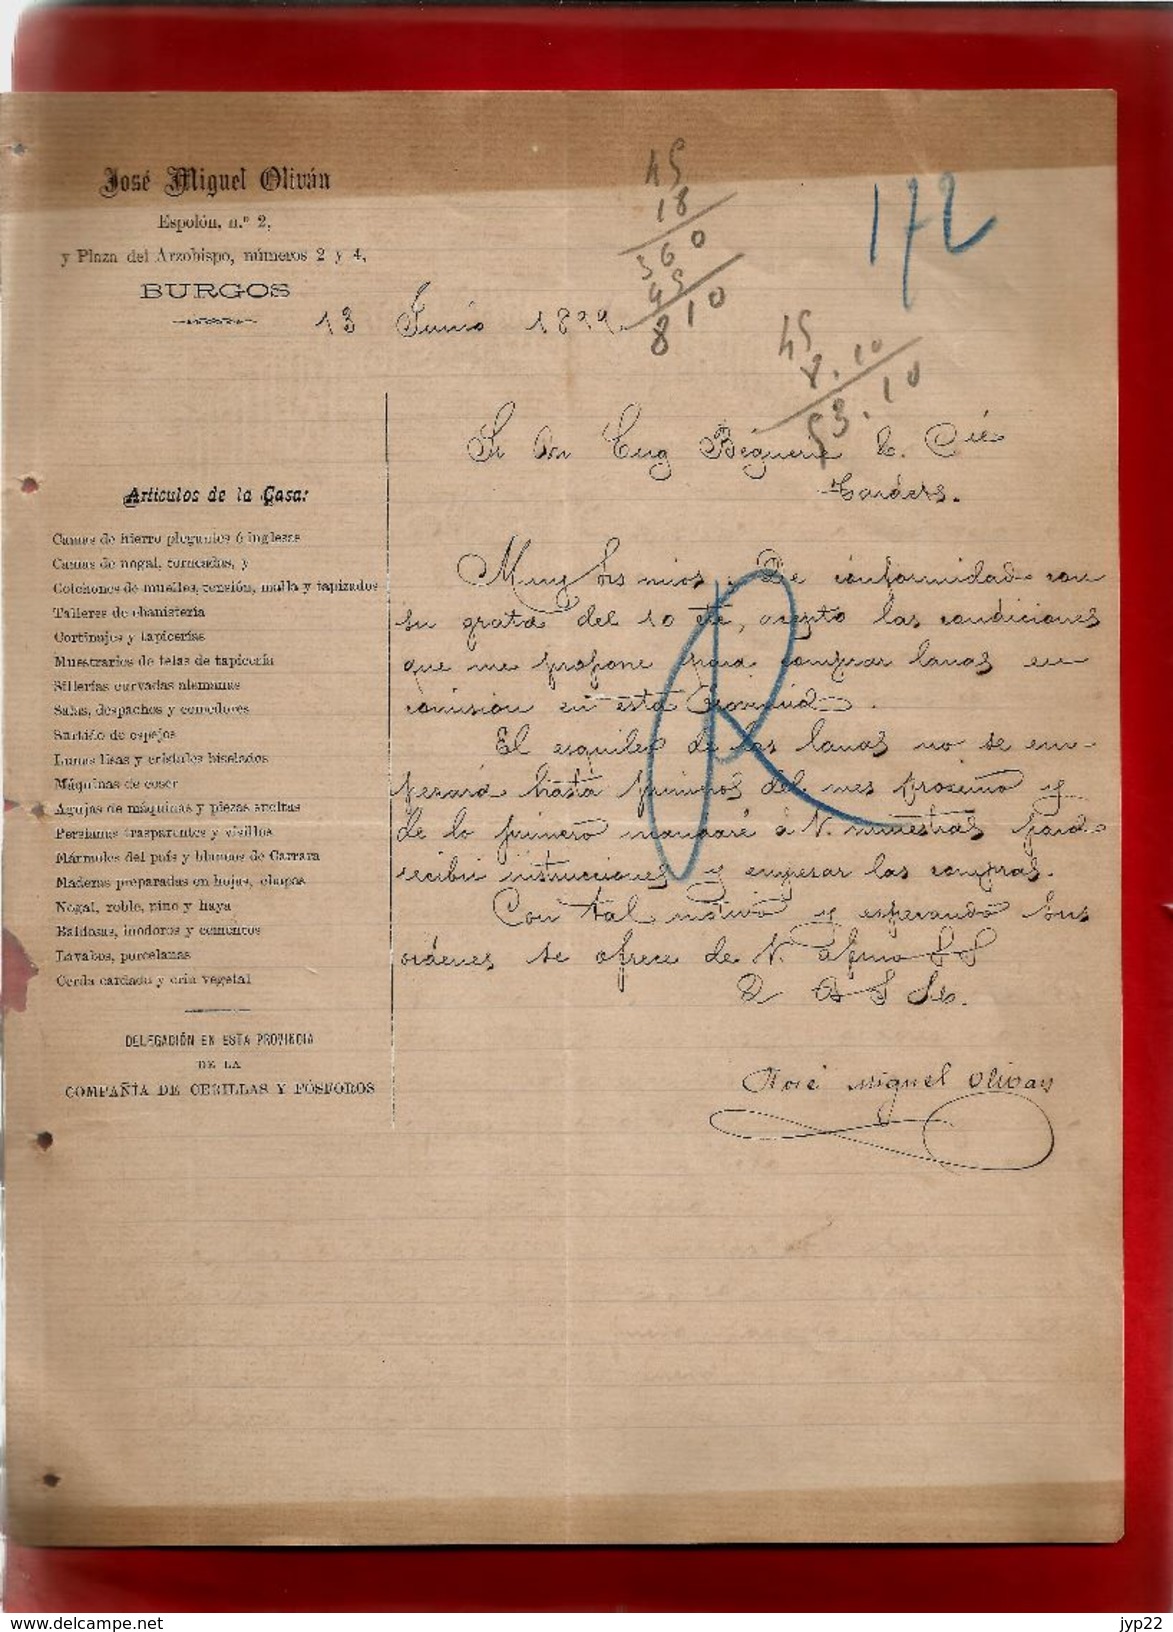 José Miguel Oliván
Espolón, n.º 2,
y Plaza del Arzobispo, números 2 y 4,
BURGOS
13 Junio 1899.
45
18
360
45
810
172
45
8.10
53.10
Sr Dn Eug Béguerie & Cié
Artículos de la Casa:
Camas de hierro plegantes é inglesas
Camas de nogal, torneadas, y
Colchones de muelles, tensión, malla y tapizados
Talleres de ebanistería
Cortinajes y tapicerías
Muestrarios de telas de tapicería
Sillerías curvadas alemanas
Salas, despachos y comedores
Surtido de espejos
Lunas lisas y cristales biselados
Máquinas de coser
Agujas de máquinas y piezas sueltas
Persianas trasparentes y visillos
Mármoles del país y blancos de Carrara
Maderas preparadas en hojas, chapas
Nogal, roble, pino y haya
Baldosas, inodoros y cementos
Lavabos, porcelanas
Cerda cardada y crin vegetal
DELEGACIÓN EN ESTA PROVINCIA
DE LA
COMPAÑÍA DE CERILLAS Y FÓSFOROS
Muy Srs mios: De conformidad con
su grata del 10 cte, acepto las condiciones
que me propone para comprar lanas en
comisión en esta Provincia.
El esquileo de las lanas no se em-
pezará hasta primeros del mes proximo y
de lo primero mandaré á V. muestras para
recibir instrucciones y empezar las compras.
Con tal motivo y esperando sus
ordenes se ofrece de V. afmo S S
Q B S M.
José Miguel Olivan
R
www.delcampe.net
jyp22